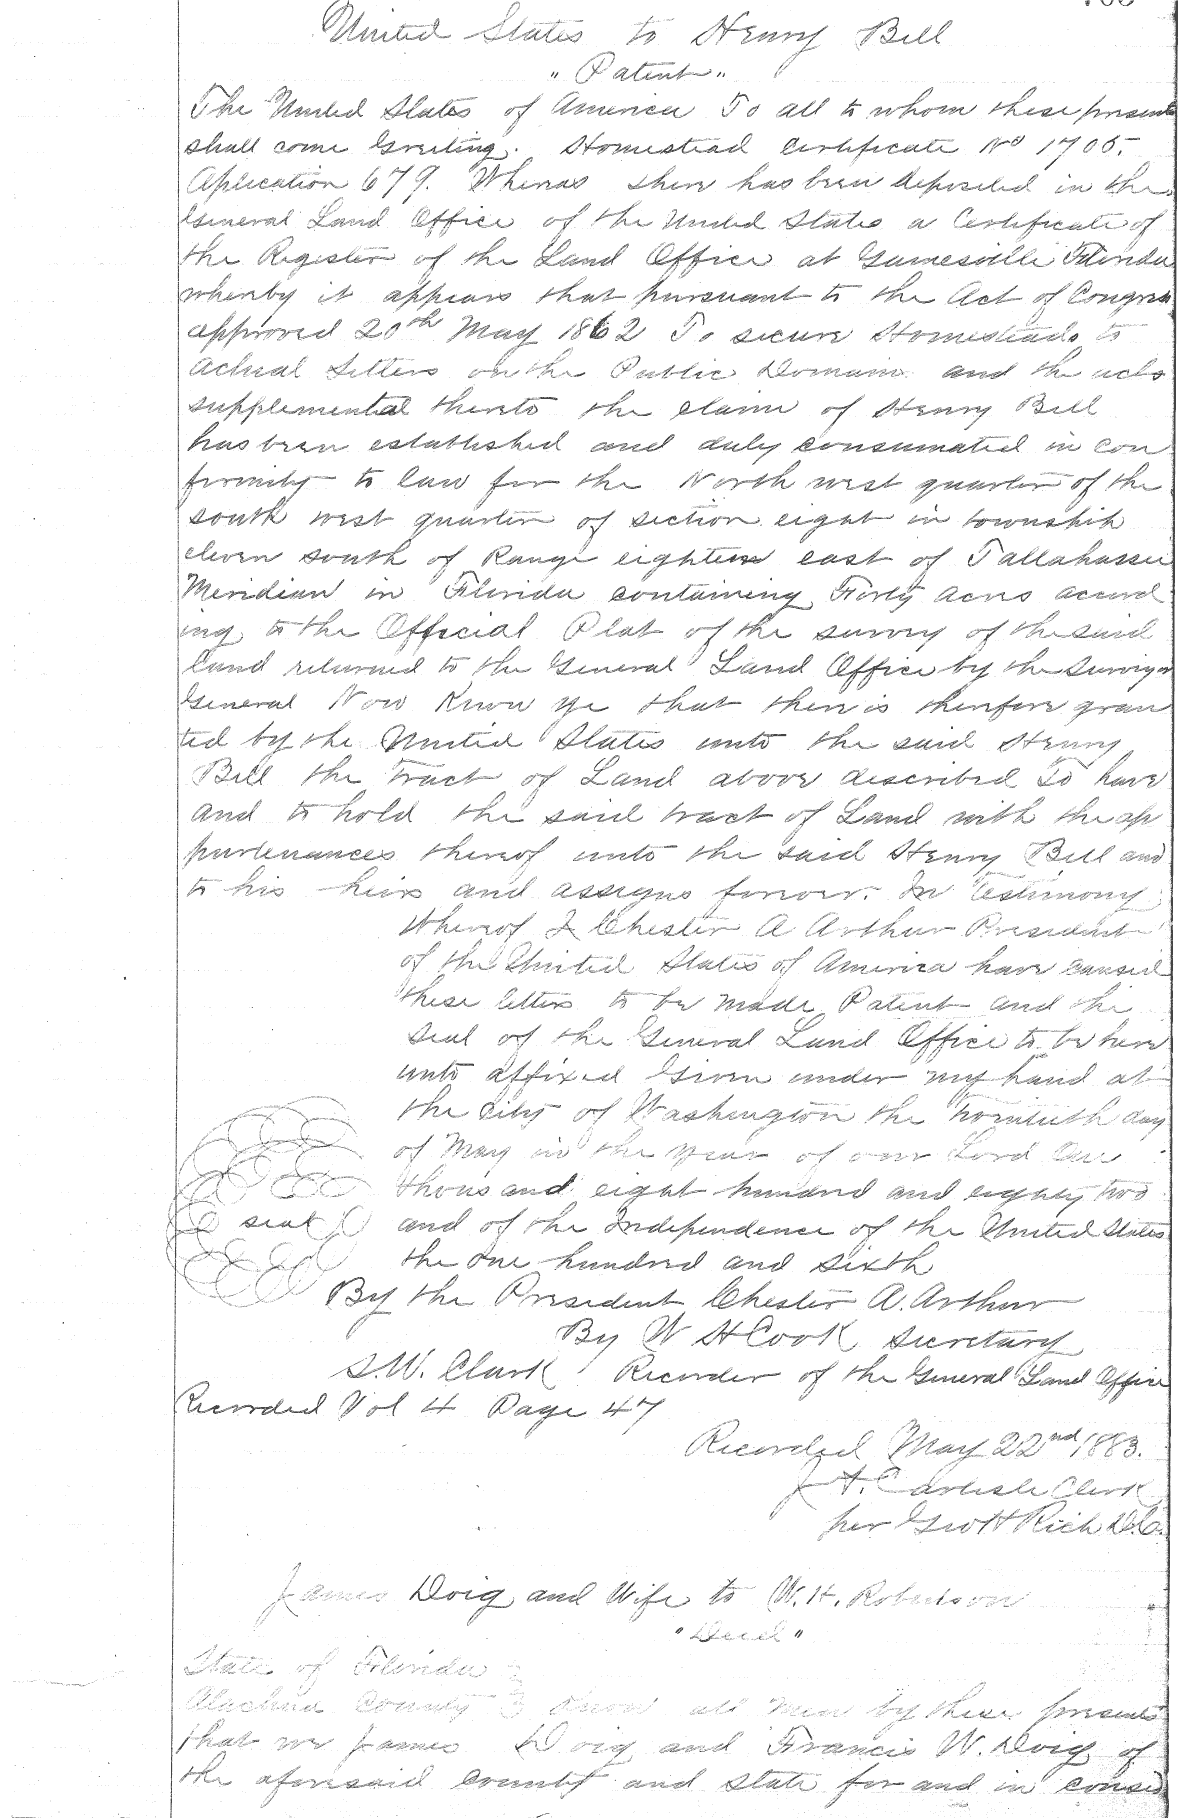 United States to Henry Bill
"Patent"
The United States of America To all to whom these presents
shall come Greeting. Homestead Certificate No 1705.
Aplication 679. Whereas there has been deposited in the
General Land Office of the United States a Certificate of
the Register of the Land Office at Gainesville Florida
whereby it appears that pursuant to the Act of Congress
approved 20th May 1862 To secure Homesteads to
Actual Settlers on the Public Domain and the acts
supplemental thereto the claim of Henry Bill
has been established and duly consumated in con
formity to law for the North west quarter of the
south west quarter of section eight in township
eleven south of Range eighteen east of Tallahassee
Meridian in Florida containing Forty acres accord
ing to the Official Plat of the survey of the said
land returned to the General Land Office by the Surveyor
General Now Know Ye that there is therefore gran
ted by the United States unto the said Henry
Bill the Tract of Land above described To have
and to hold the said tract of Land with the ap
purtenances thereof unto the said Henry Bill and
to his heirs and assigns forever. In Testimony
Whereof I Chester A Arthur President
of the United States of America have caused
these letters to be made Patent and the
seal of the General Land Office to be here
unto affixed Given under my hand at
the City of Washington the twentieth day
of May in the year of our Lord One
thousand eight hundred and eighty two
seal and of the Independence of the United States
the one hundred and sixth
By the President Chester A. Arthur
By W H Cook Secretary
S.W. Clark Recorder of the General Land Office
Recorded Vol 4 Page 47
Recorded May 22nd 1883.
J A. Carlisle Clerk
per Geo H Rich D.C.
James Doig and Wife to W. H. Robertson
"Deed"
State of Florida
Alachua County Know all Men by these presents
that we James Doig and Francis W. Doig of
the aforesaid County and State for and in consid